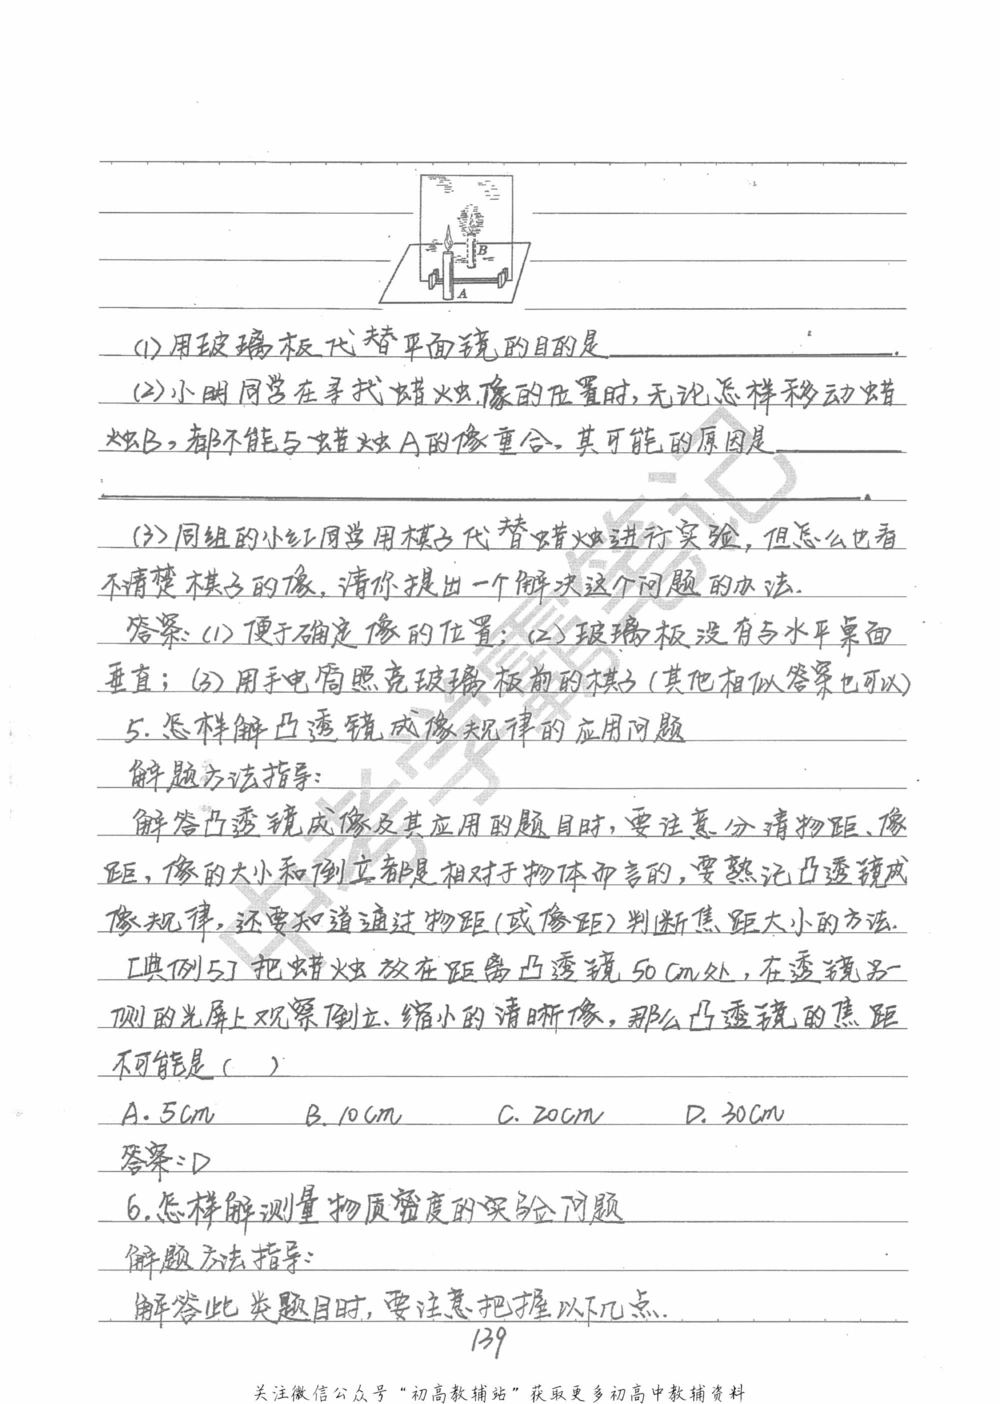 B
A
(1)用玻璃板代替平面镜的目的是
(2)小明同学在寻找蜡烛像的位置时,无论怎样移动蜡
烛B,都不能与蜡烛A的像重合。其可能的原因是
(3)同组的小红同学用棋子代替蜡烛进行实验,但怎么也看
不清楚棋子的像,请你提出一个解决这个问题的办法.
答案:(1)便于确定像的位置;(2)玻璃板没有与水平桌面
垂直;(3)用手电筒照亮玻璃板前的棋子(其他相似答案也可以)
5.怎样解凸透镜成像规律的应用问题
解题方法指导:
解答凸透镜成像及其应用的题目时,要注意分清物距、像
距,像的大小和倒立都是相对于物体而言的,要熟记凸透镜成
像规律,还要知道通过物距(或像距)判断焦距大小的方法.
[典例5]把蜡烛放在距离凸透镜50cm处,在透镜另一
侧的光屏上观察倒立、缩小的清晰像,那么凸透镜的焦距
不可能是( )
A.5cm B.10cm C.20cm D.30cm
答案:D
6.怎样解测量物质密度的实验问题
解题方法指导:
解答此类题目时,要注意把握以下几点.
139
中考学霸笔记
关注微信公众号“初高教辅站”获取更多初高中教辅资料